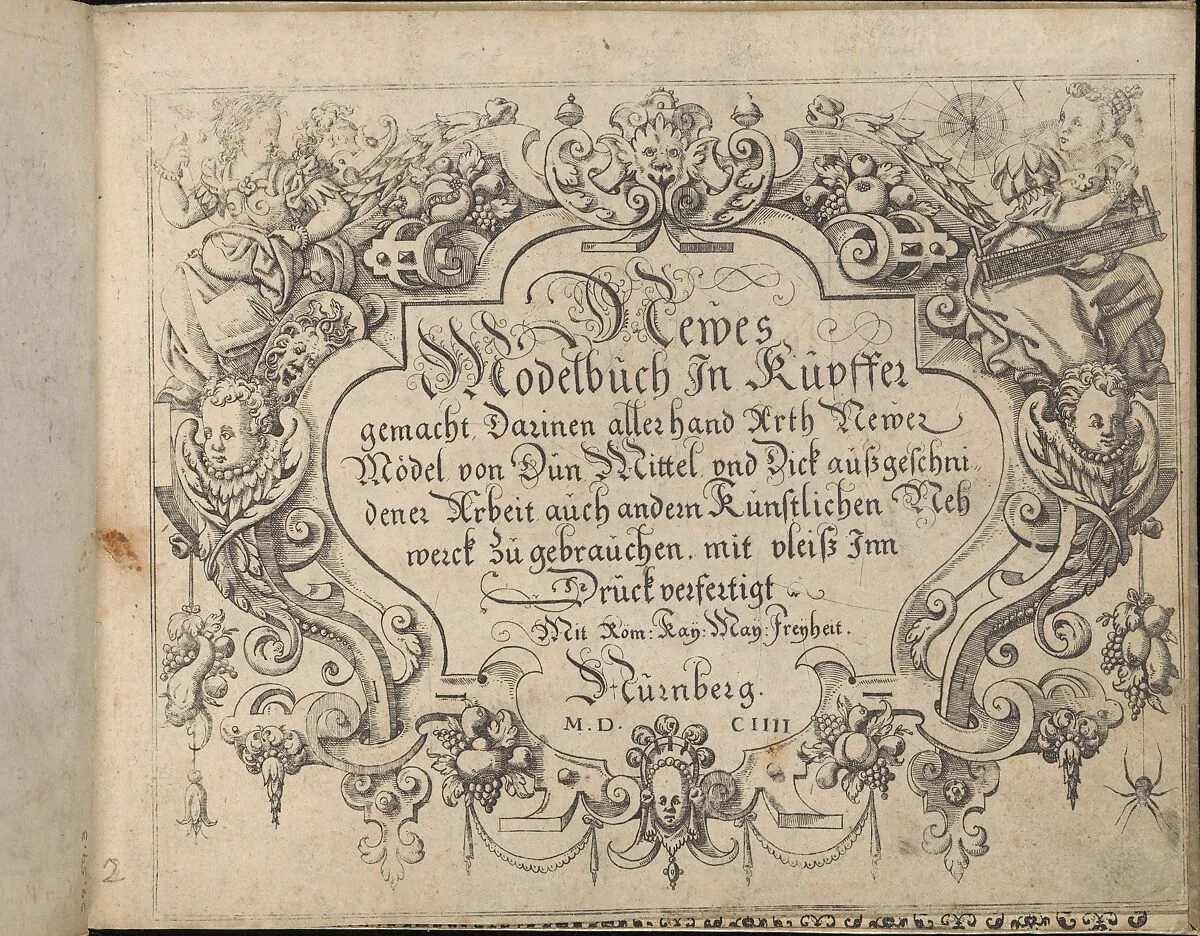 Newes
Modelbuch In Kupffer
gemacht, Darinen allerhand Arth Newer
Mödel von Dün Mittel vnd Dick außgeschni⸗
dener Arbeit auch andern Künstlichen Neh
werck zu gebrauchen. mit vleiß Inn
Druck verfertigt
Mit Röm: Kay: May: Freyheit.
Nürnberg.
M. D. CIIII
2